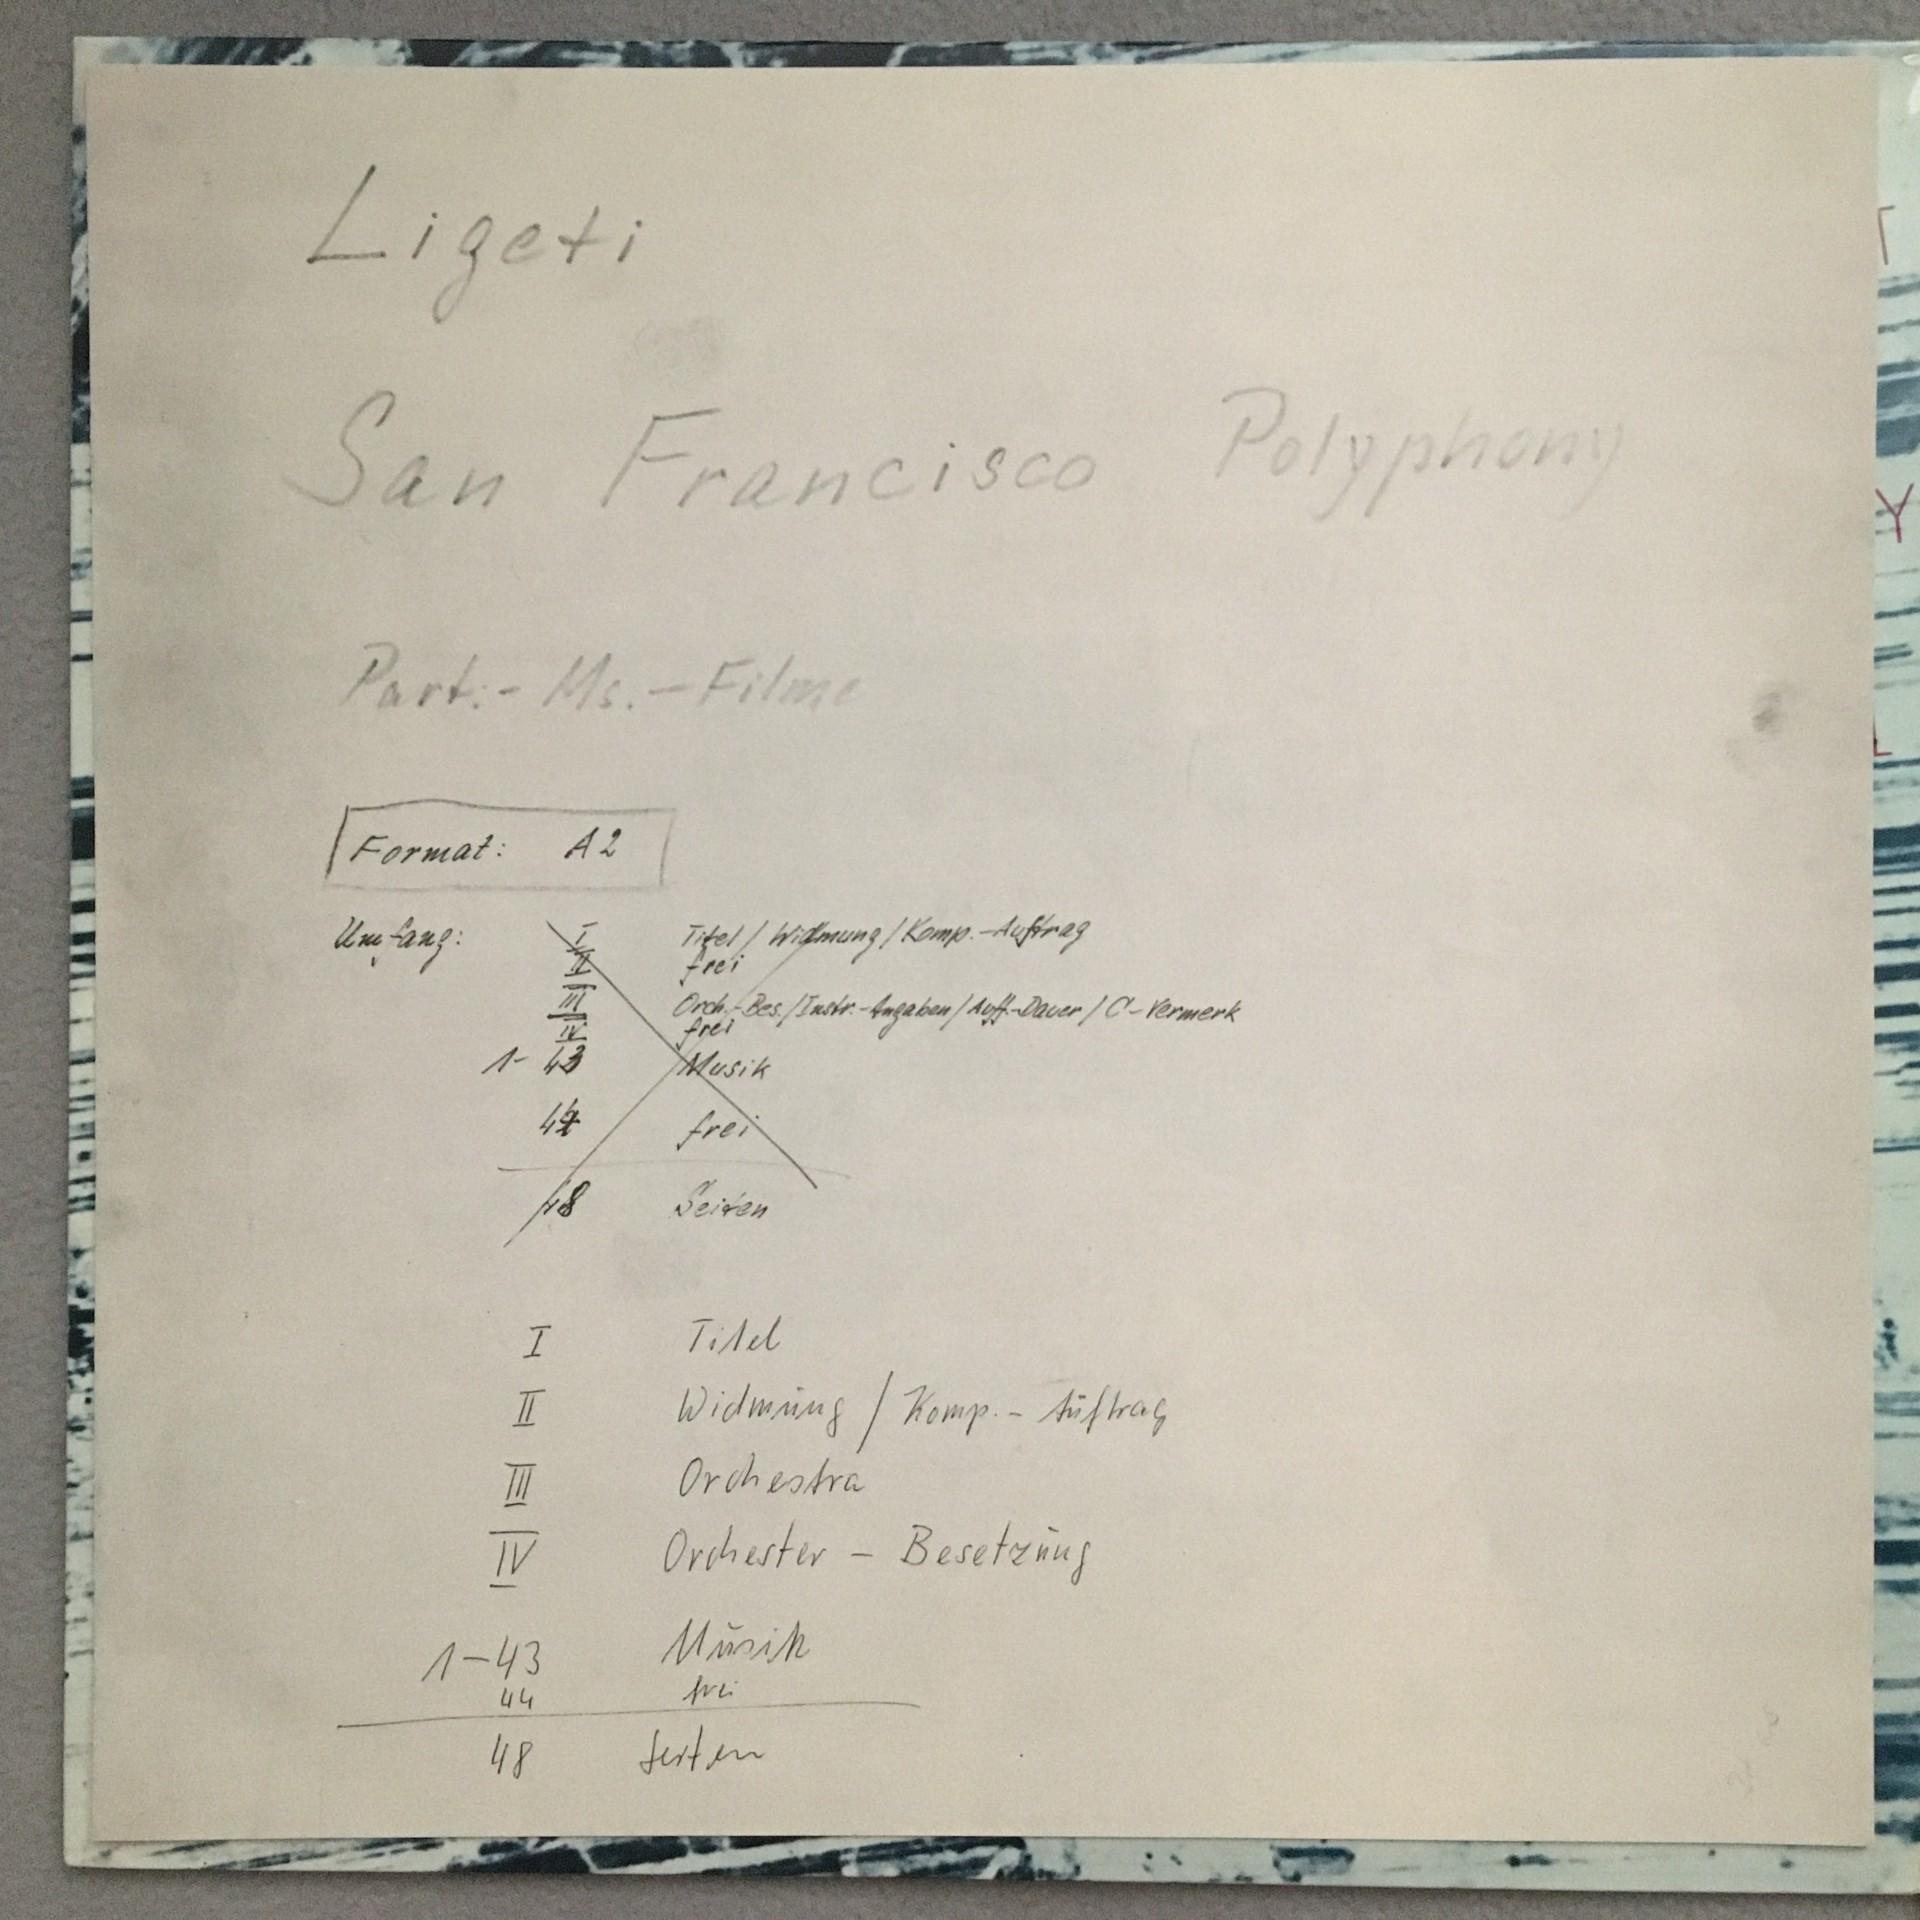 Ligeti
San Francisco Polyphony
Part.-Ms.-Filme
Format: A2
Umfang: I Titel / Widmung / Komp.-Auftrag
II frei
III Orch.-Bes. / Instr.-Angaben / Auff.-Dauer / C-Vermerk
IV frei
1-43 Musik
44 frei
48 Seiten
I Titel
II Widmung / Komp.-Auftrag
III Orchestra
IV Orchester - Besetzung
1-43 Musik
44 frei
48 Seiten
T
Y